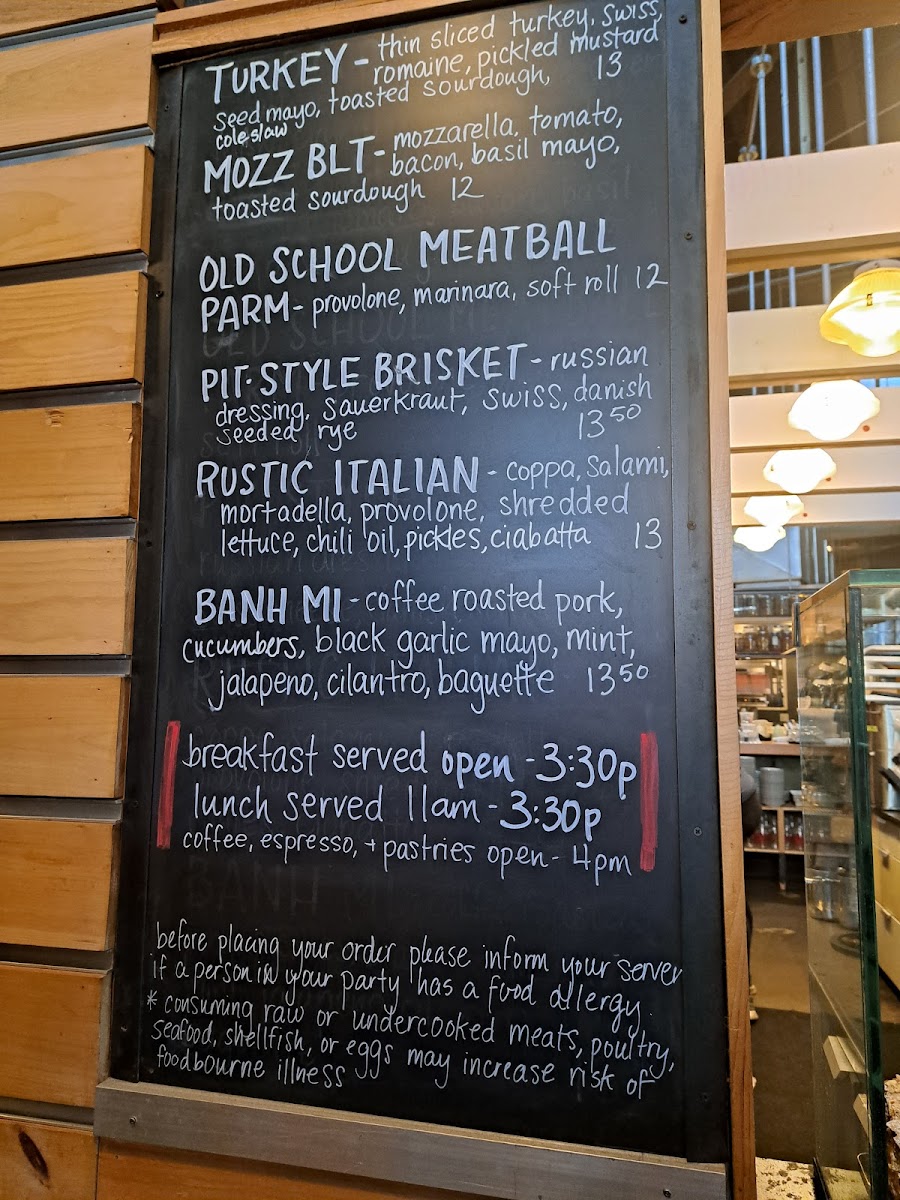 TURKEY - thin sliced turkey, swiss,
romaine, pickled mustard
seed mayo, toasted sourdough, 13
coleslaw
MOZZ BLT - mozzarella, tomato,
bacon, basil mayo,
toasted sourdough 12
OLD SCHOOL MEATBALL
PARM - provolone, marinara, soft roll 12
PIT-STYLE BRISKET - russian
dressing, sauerkraut, swiss, danish
seeded rye 13 50
RUSTIC ITALIAN - coppa, salami,
mortadella, provolone, shredded
lettuce, chili oil, pickles, ciabatta 13
BANH MI - coffee roasted pork,
cucumbers, black garlic mayo, mint,
jalapeno, cilantro, baguette 13 50
breakfast served open - 3:30p
lunch served 11am - 3:30p
coffee, espresso, + pastries open - 4pm
before placing your order please inform your server
if a person in your party has a food allergy.
* consuming raw or undercooked meats, poultry,
seafood, shellfish, or eggs may increase risk of
foodbourne illness